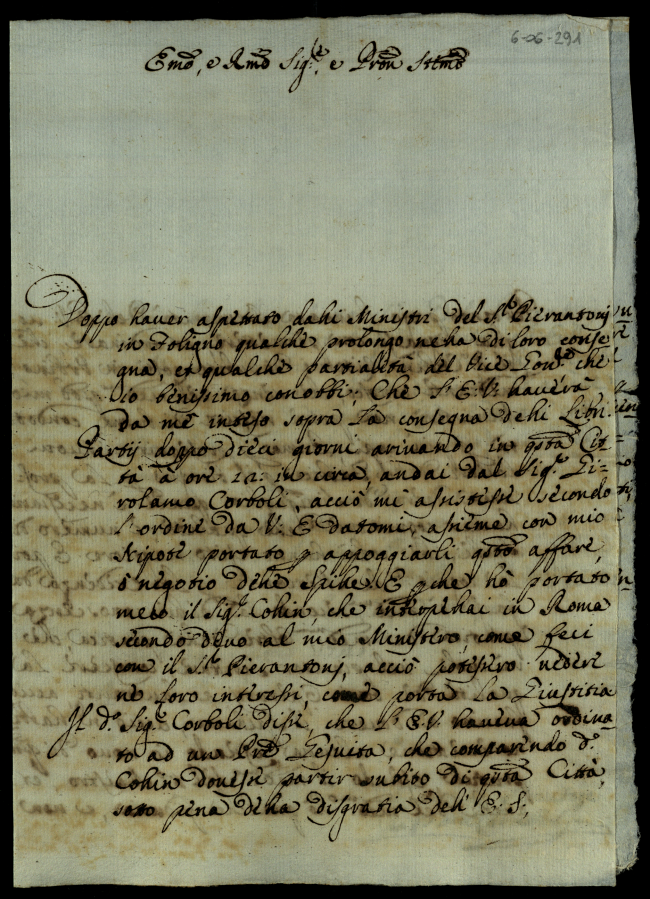 6-06-291
Emo, e Rmo Sig.re, e Pron Stimo
Doppo haver aspettato dalli Ministri del S.r Pierantonj
in Foligno qualche prolongo nella di loro conse
gna, et qualche partialità del Vice Gon.re che
io benissimo conobbi; Che l'E.V. haverà
da me inteso sopra la consegna delli Libri.
Partij doppo dieci giorni arivando in qsta Cit-
tà à ore 22: in circa, andai dal Sig.r Gi-
rolamo Corboli, acciò mi assistesse secondo
l'ordine da V. E datomi, assieme con mio
Nipote portato p appoggiarli qsto affare,
ò negotio delle Spille. E pche hò portato
meco il Sig.r Cohin, che interpellai in Roma
secondo devo al mio Ministero, come feci
con il S.r Pierantonj, acciò potessero vedere
ne loro interessi, come porta la Giustitia
Il d.o Sig.r Corboli disse, che l'E.V. haveva ordina-
to ad un Pre Gesuita, che comparendo d.o
Cohin dovesse partir subito di qsta Città,
sotto pena della disgratia dell'E. S.,